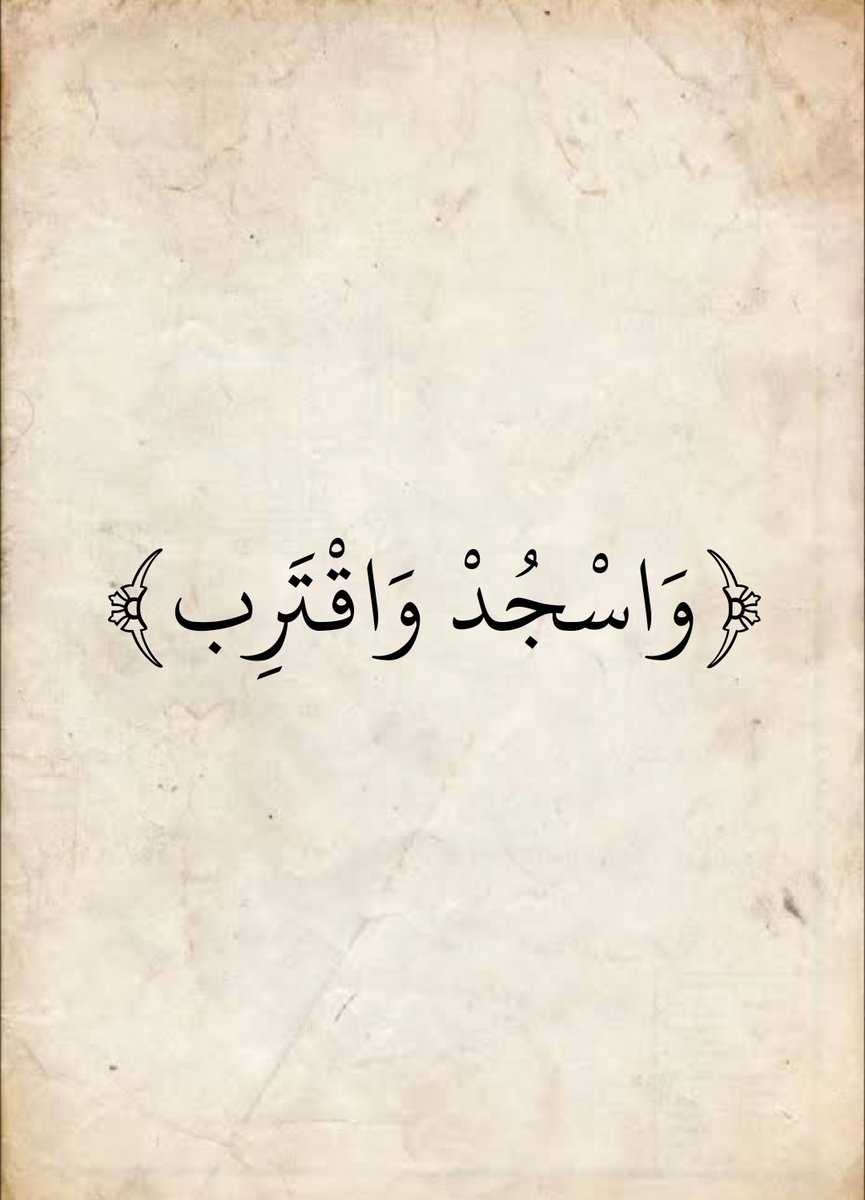 ﴿وَاسْجُدْ وَاقْتَرِب﴾